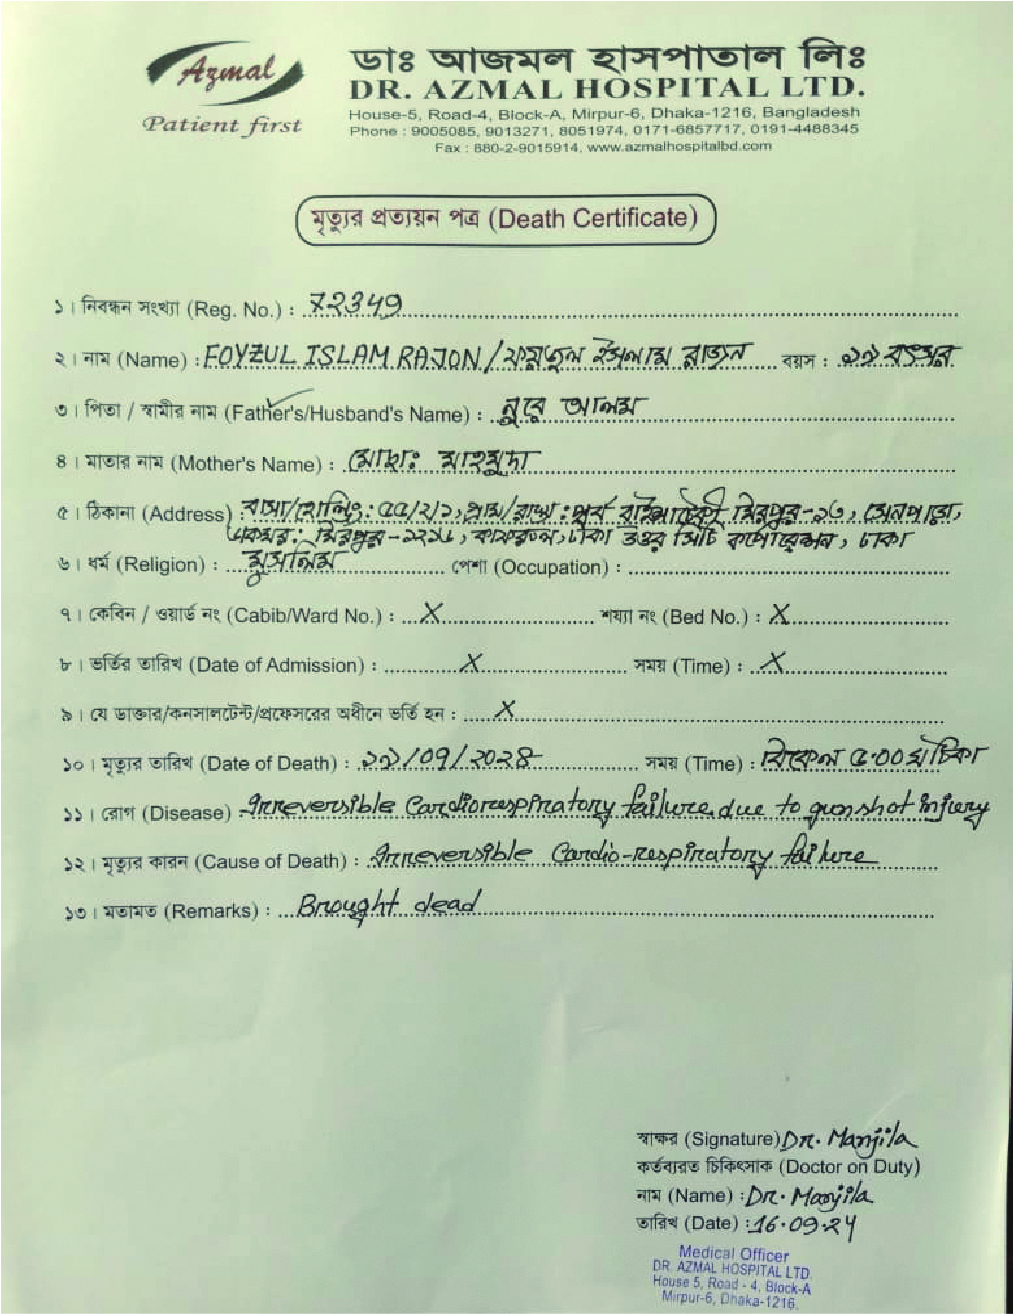 Azmal
Patient first
ডাঃ আজমল হাসপাতাল লিঃ
DR. AZMAL HOSPITAL LTD.
House-5, Road-4, Block-A, Mirpur-6, Dhaka-1216, Bangladesh
Phone : 9005085, 9013271, 8051974, 0171-6857717, 0191-4488345
Fax : 880-2-9015914, www.azmalhospitalbd.com
মৃত্যুর প্রত্যয়ন পত্র (Death Certificate)
১। নিবন্ধন সংখ্যা (Reg. No.) : 72349
২। নাম (Name) : FOYZUL ISLAM RAJON / ফয়জুল ইসলাম রাজন বয়স : ১৯ বৎসর
৩। পিতা / স্বামীর নাম (Father's/Husband's Name) : নুরে আলম
৪। মাতার নাম (Mother's Name) : মোছাঃ মাহমুদা
৫। ঠিকানা (Address) বাসা/হোল্ডিং: ৫৫/২/১, গ্রাম/রাস্তা : পূর্ব বাইশটেকী মিরপুর-১৩, সেনপাড়া,
ডাকঘর: মিরপুর-১২১৬, কাফরুল, ঢাকা উত্তর সিটি কর্পোরেশন, ঢাকা
৬। ধর্ম (Religion) : মুসলিম পেশা (Occupation) :
৭। কেবিন / ওয়ার্ড নং (Cabib/Ward No.) : X শয্যা নং (Bed No.) : X
৮। ভর্তির তারিখ (Date of Admission) : X সময় (Time) : X
৯। যে ডাক্তার/কনসালটেন্ট/প্রফেসরের অধীনে ভর্তি হন : X
১০। মৃত্যুর তারিখ (Date of Death) : ১৯/০৭/২০২৪ সময় (Time) : বিকেল ৫:০০ ঘটিকা
১১। রোগ (Disease) : Irreversible Cardiorespiratory failure due to gunshot injury
১২। মৃত্যুর কারন (Cause of Death) : Irreversible Cardio-respiratory failure
১৩। মতামত (Remarks) : Brought dead
স্বাক্ষর (Signature) Dr. Manjila
কর্তব্যরত চিকিৎসাক (Doctor on Duty)
নাম (Name) : Dr. Manjila
তারিখ (Date) : 16.09.24
Medical Officer
DR. AZMAL HOSPITAL LTD.
House 5, Road - 4, Block-A
Mirpur-6, Dhaka-1216.